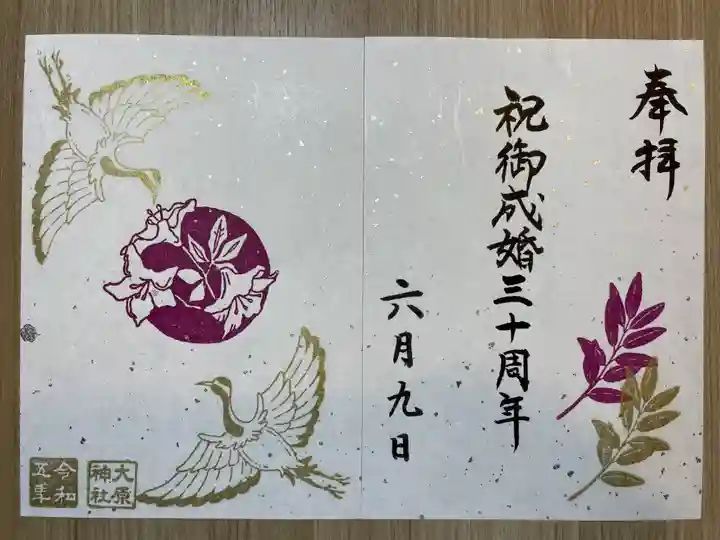 奉拝
祝御成婚三十周年
六月九日
大原神社
令和五年